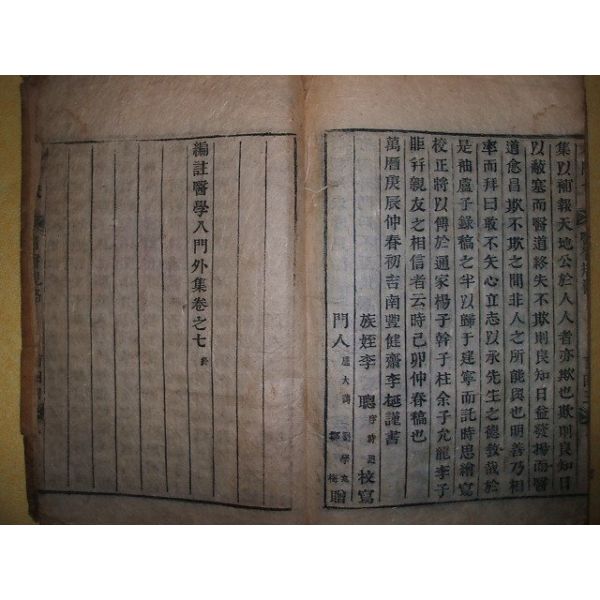 集以補報天地公於人人者亦欺也欺則良知日
以蔽塞而醫道終失不欺則良知日益發揚而醫
道愈昌欺不欺之間非人之所能與也明善乃相
率而拜曰敢不矢心立志以永先生之德教哉於
是補盧子錄稿之半以歸于建寧而託時思繪寫
校正將以傳於通家楊子幹子柱余子允龍李子
親友之相信者云時己卯仲春稿也
萬曆庚辰仲春初吉南豐健齋李梴謹書
族姪李聰字時 校寫
門人 大 學
編註醫學入門外集卷之七 終